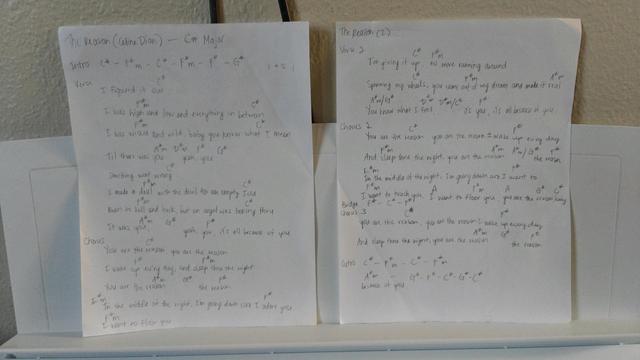 The Reason (Celine Dion) — C# Major
Intro C# - F#m - C# - F#m - F# - G#
Verse C#
I figured it out
F#m C#
I was high and low and everything in between
F#m C#
I was wicked and wild, baby you know what I mean
A#m F# G#
Till there was you yeah, you
C#
Something went wrong
F#m C#
I made a deal with the devil for an empty
F#m C#
Been to hell and back, but an angel was looking thru
A#m G# F#
It was you, yeah you, it's all because of you
Chorus C#
You are the reason you are the reason
F#
I wake up every day, and sleep thru the night
A#m G# F#
You are the reason the reason
In the middle of the night, I'm going down cuz I adore you
F#m
I want to floor you
The Reason (2)
Verse 2 C# F#m
I'm giving it up no more running around
C# F#m
Spinning my wheels, you came out of my dream and made it real
You know what I feel it's you, it's all because of you
Chorus 2 C# F#
You are the reason you are the reason I wake up every day
And sleep thru the night, you are the reason the reason
In the middle of the night, I'm going down cuz I want to
I want to touch you, I want to floor you, you are the reason baby
Bridge
Chorus 3 C# F#
You are the reason, you are the reason I wake up every day
A#m G# F#
And sleep thru the night, you are the reason the reason
Outro C# - F#m - C# - F#m
A#m - G# - F# - C# - G# - C#
because of you